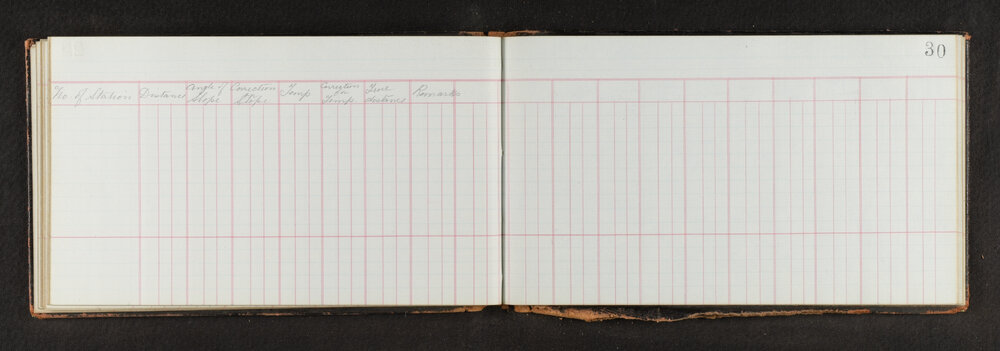 30
No. of Station Distance Angle of Slope Correction for Slope Temp Correction for Temp True distance Remarks